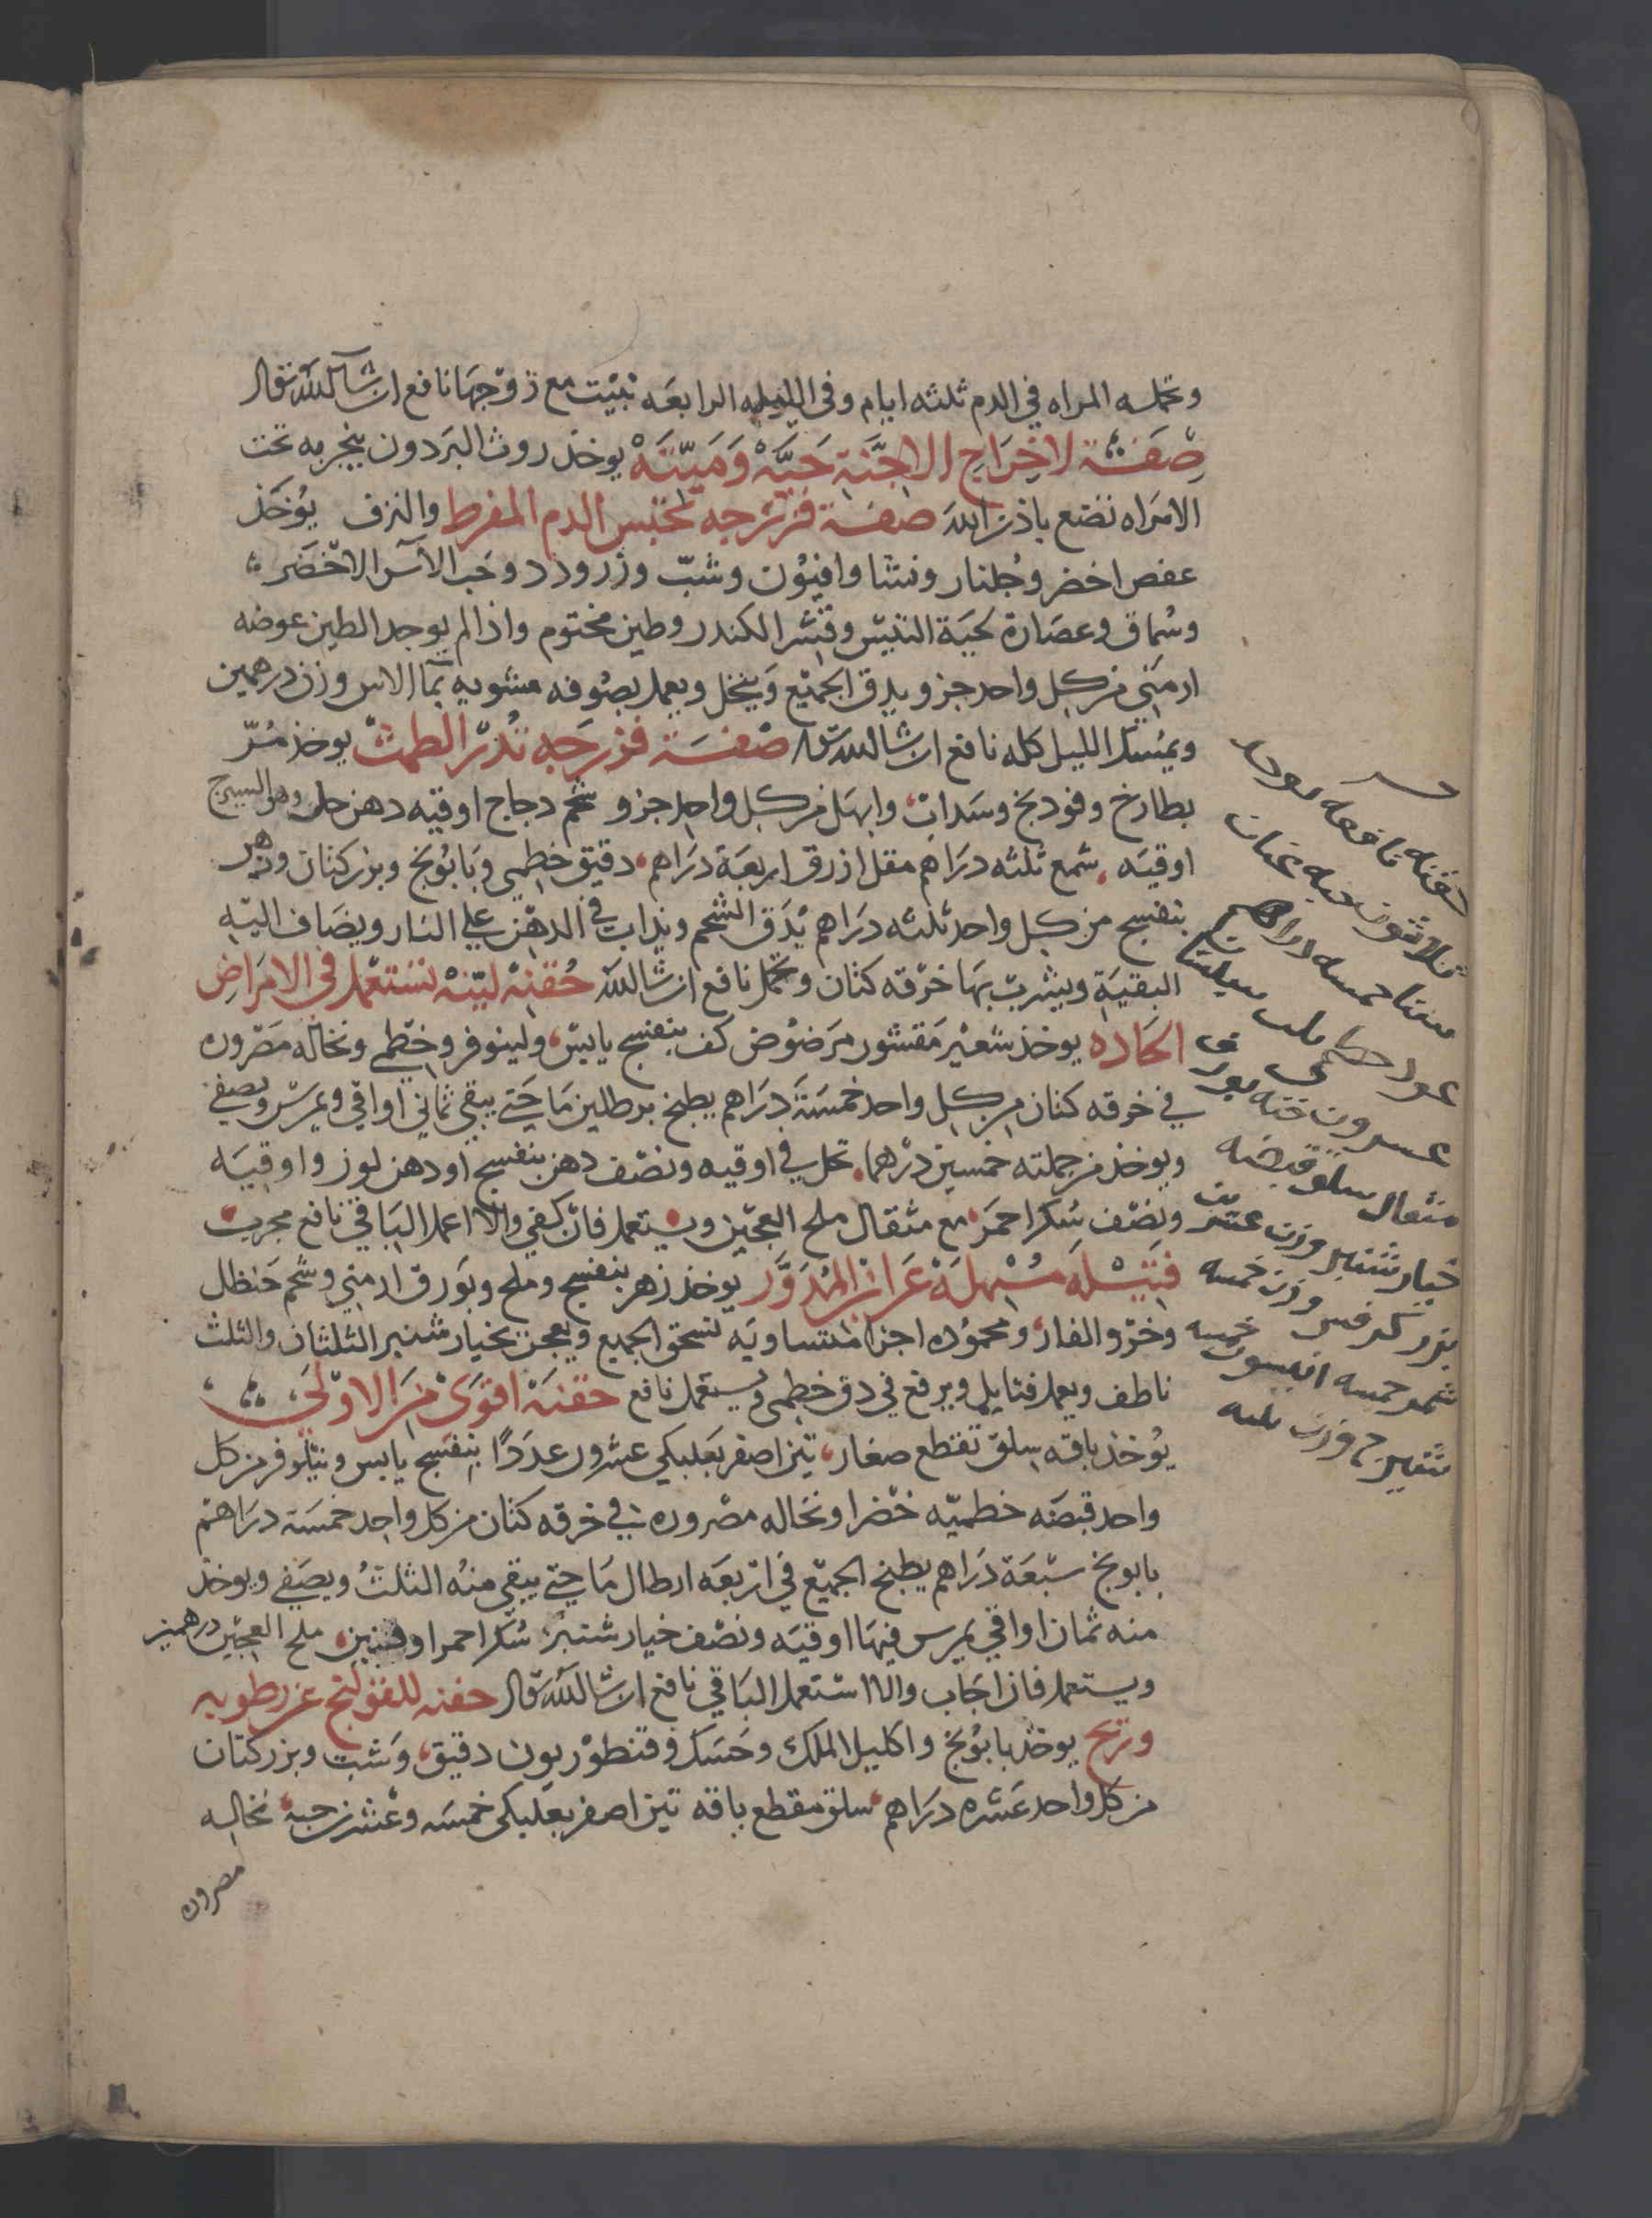 وتحمله المراه في الدم ثلثه ايام وفي الليله الرابعه تبيت مع زوجها نافع ان شا الله تعالى
صفة لاخراج الاجنة حية وميتة يوخذ روث البردون يبخر به تحت
الامراه تضع باذن الله صفة فرزجه تحبس الدم المفرط والنزف يؤخذ
عفص اخضر وجلنار ونشا وافيون وشب وزرورد وحب الآس الاخضر
وسماق وعصارة لحية التيس وقشر الكندر وطين مختوم واذا لم يوجد الطين عوضه
ارمني من كل واحد جزو يدق الجميع وينخل ويعمل بصوفه مشويه بما الاس وزن درهمين
ويمسك الليل كله نافع ان شا الله تعالى صفة فرزجه تدر الطمث يوخذ مر
بطارخ وفودنج وسداب وابهل من كل واحد جزو شحم دجاج اوقيه دهن حل وهو السيرج
اوقيه شمع ثلثه دراهم مقل ازرق اربعة دراهم دقيق خطمي وبابونج وبزر كتان وزهر
بنفسج من كل واحد ثلثه دراهم يدق الشحم ويذاب في الدهن على النار ويضاف اليه
البقية ويشرب بها خرقه كتان وتحمل نافع ان شا الله حقنة لينة تستعمل في الامراض
الحاده يوخذ شعير مقشور مرضوض كف بنفسج يابس ولينوفر وخطمي ونخاله مصروره
في خرقه كتان من كل واحد خمسة دراهم يطبخ برطلين ما حتى يبقى ثماني اواقي ويمرس ويصفى
ويوخذ من جملته خمسين درهما تحل في اوقيه ونصف دهن بنفسج او دهن لوز واوقيه
ونصف سكر احمر مع مثقال ملح العجين ويستعمل فان كفى والا اعمل الباقي نافع مجرب
فتيلة مسهلة عن ابن المدور يوخذ زهر بنفسج وملح وبورق ارمني وشحم حنظل
وخرو الفار ومحموده اجزا متساويه تسحق الجميع ويعجن بخيار شنبر الثلثان والثلث
ناطف ويعمل فتايل ويرفع في دق خطمي ويستعمل نافع حقنة اقوى من الاولى
يؤخذ باقه سلق تقطع صغار تين اصفر بعلبكي عشرون عددا بنفسج يابس ونيلوفر من كل
واحد قبضه خطميه خضرا ونخاله مصروره في خرقه كتان من كل واحد خمسة دراهم
بابونج سبعة دراهم يطبخ الجميع في اربعه ارطال ما حتى يبقى منه الثلث ويصفى ويوخذ
منه ثمان اواقي يمرس فيها اوقيه ونصف خيار شنبر سكر احمر اوقيتين ملح العجين درهمين
ويستعمل فان اجاب والا استعمل الباقي نافع ان شا الله تعالى حقنه للقولنج عن رطوبه
وريح يوخذ بابونج واكليل الملك وحسك وقنطوريون دقيق وشبت وبزر كتان
من كل واحد عشره دراهم سلق مقطع باقه تين اصفر بعلبكي خمسه وعشرين حبة نخاله
مصروره
حقنه نافعه
حبه عناب
سنا خمسه دراهم
مثقال سلق قبضه
خيار شنبر وزن عشرين
بزر كرفس وزن خمسه
شمر خمسه انيسون خمسه
وزن